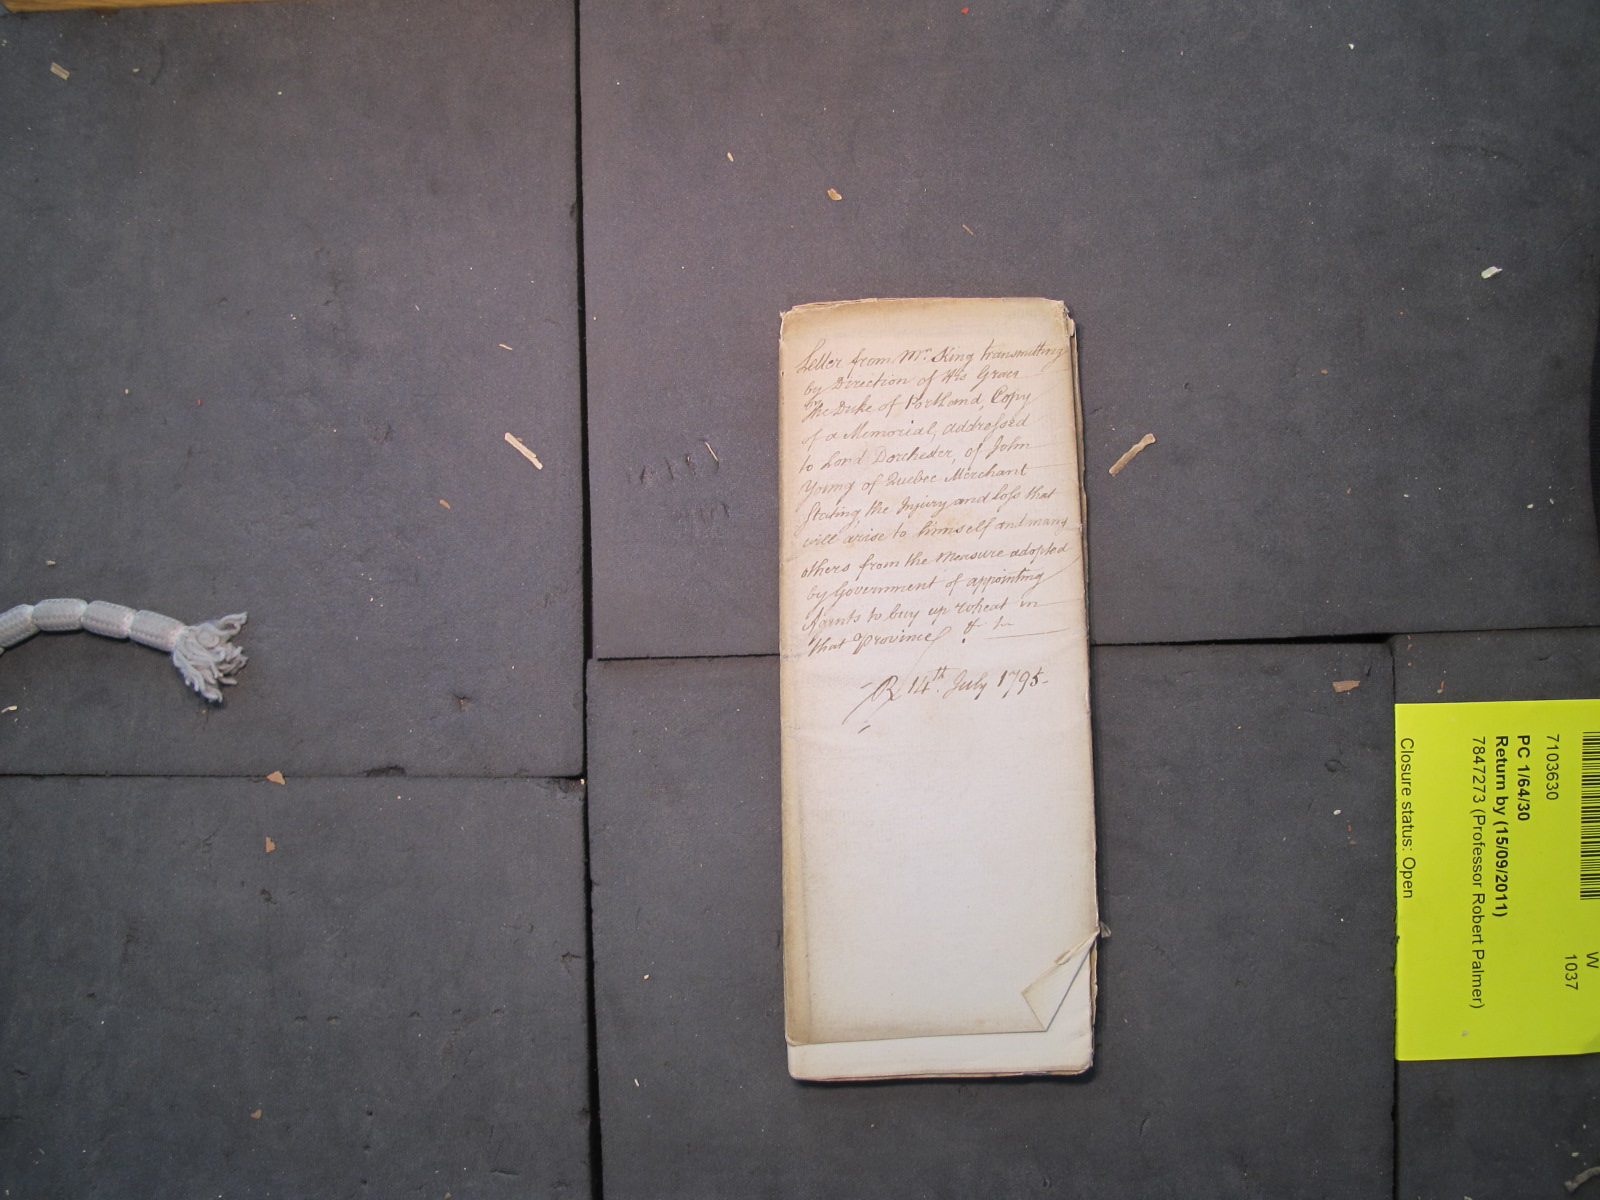 Letter from Mr. King transmitting
by Direction of His Grace
the Duke of Portland, Copy
of a Memorial, addressed
to Lord Dorchester, of John
Young of Quebec Merchant
Stating the Injury and Loss that
will arise to himself and many
others from the Measure adopted
by Government of appointing
Agents to buy up Wheat in
that Province
R 14th. July 1795.
7103630
PC 1/64/30
Return by (15/09/2011)
7847273 (Professor Robert Palmer)
Closure status: Open
W
1037